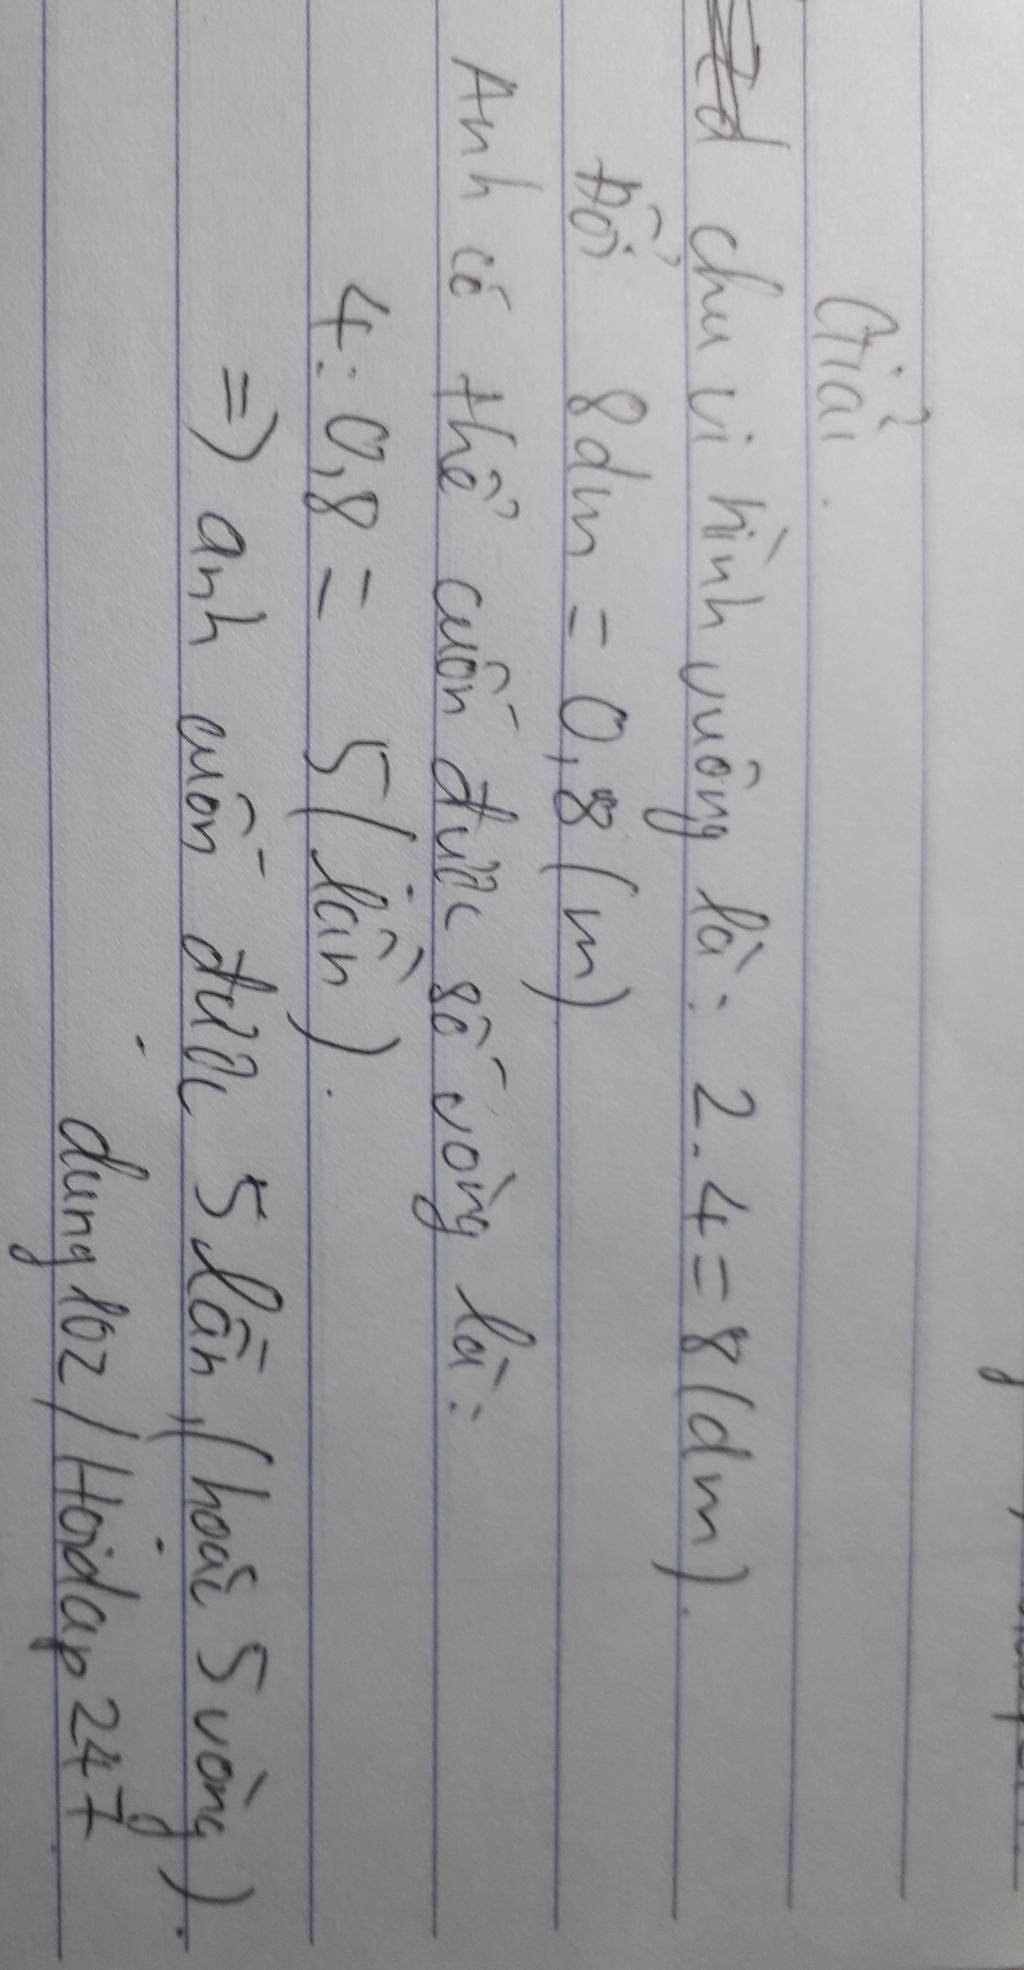 Giải.
chu vi hình vuông là: 2.4=8(dm).
Đổi 8dm = 0,8(m)
Anh có thể cuốn được số vòng là:
4:0,8 = 5(lần).
=) anh cuốn được 5 lần,(hoăc 5 vòng).
dungloz/Hoidap247